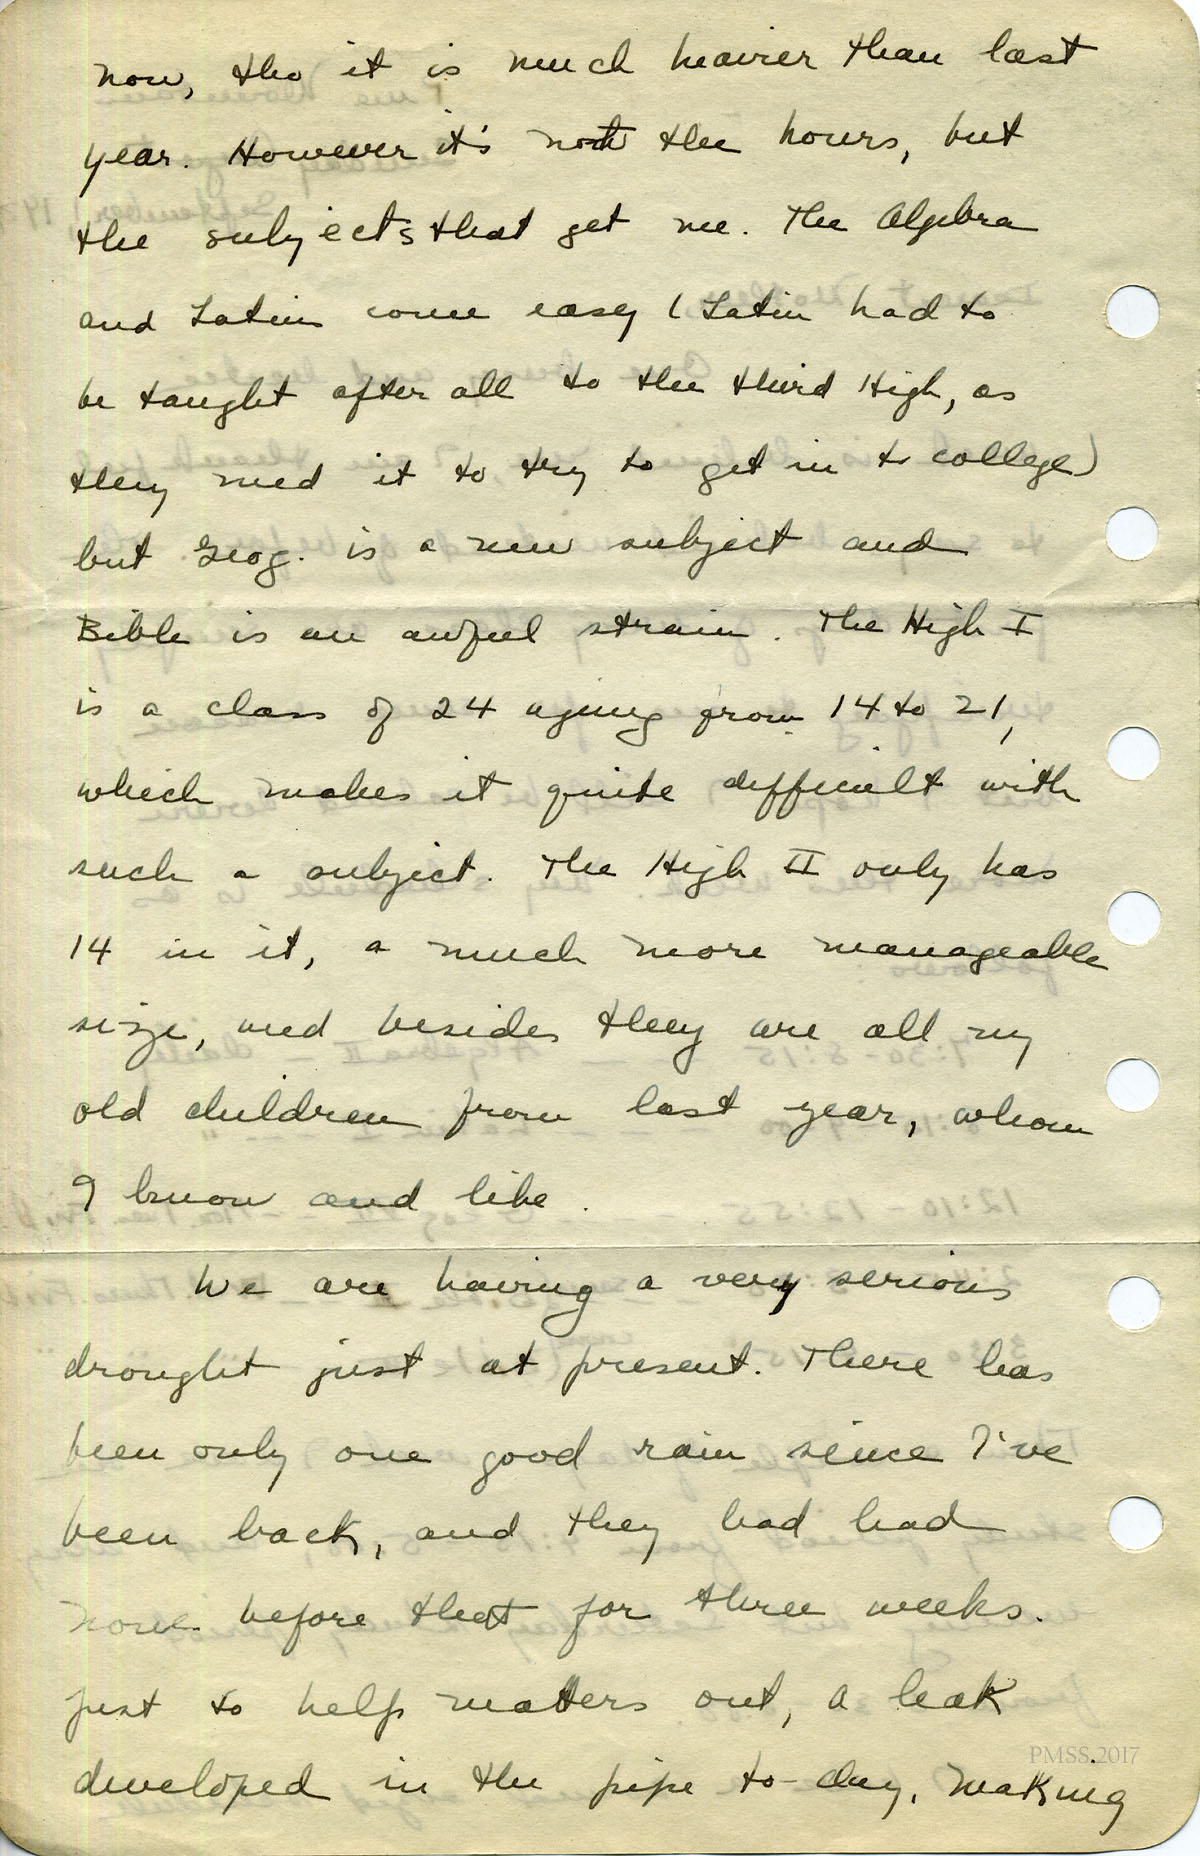 now, tho it is much heavier than last
year. However it's not the hours, but
the subjects that get me. The Algebra
and Latin come easy (Latin had to
be taught after all to the third High, as
they need it to try to get in to college)
but Geog. is a new subject and
Bible is an awful strain. The High I
is a class of 24 aging from 14 to 21,
which makes it quite difficult with
such a subject. The High II only has
14 in it, a much more manageable
size, and besides they are all my
old children from last year, whom
I know and like.
We are having a very serious
drought just at present. There has
been only one good rain since I've
been back, and they had had
none before that for three weeks.
Just to help matters out, a leak
developed in the pipe to-day, making
PMSS.2017